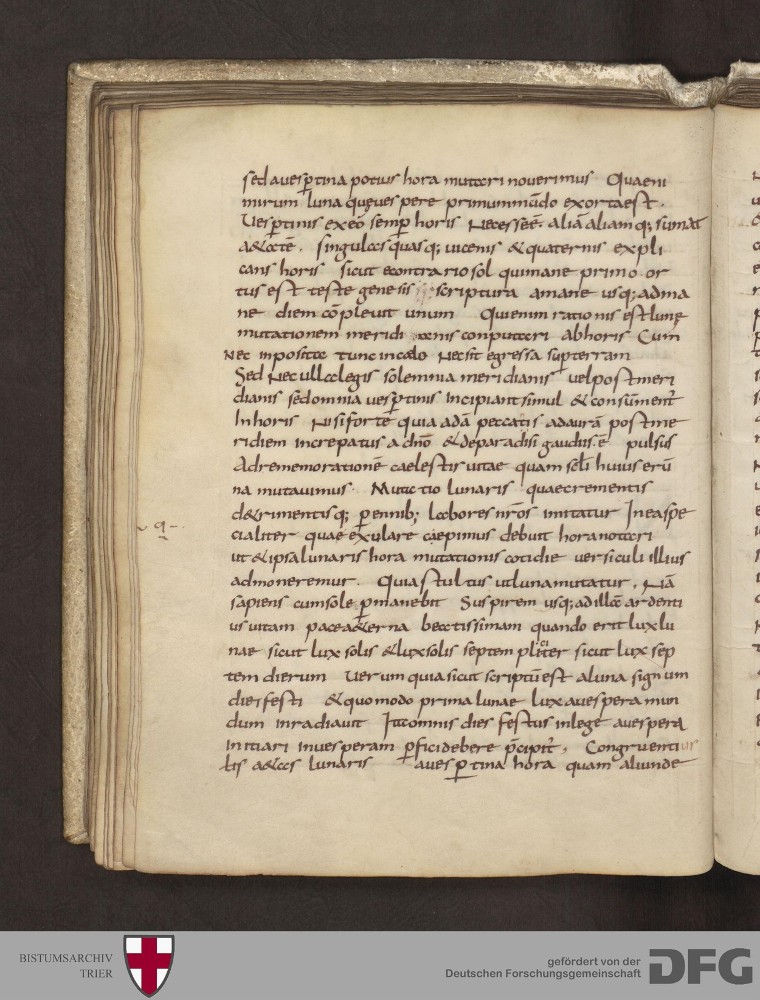 sed a uespertina potius hora mutari nouerimus Quae ni
mirum luna quę uespere primum mūdo exorta est.
Uespertinis ex eo semp horis Necesse ē. aliā aliamq; sumat
aetatē. singulas quasq; uicenis & quaternis expli
cans horis sicut e contrario sol qui mane primo. or
tus est teste genesis scriptura a mane usq; ad ma
ne diem cōpleuit unum Qu enim rationis est lunę
mutationem meridi anis conputari ab horis Cum
Nec inposita tunc in cælo Nec sit egressa sup terram
Sed Nec ulla legis solemnia meridianis uel postmeri
dianis sed omnia uespertinis incipiant simul & consūment
In horis Nisi forte quia adā peccatis ad aurā post me
ridiem increpatus a dnō & de paradisi gaudiis ē pulsus
Ad rememorationē caelestis uitae quam scłi huius erū
na mutauimus. Mutatio lunaris quae crementis
d&rimentisq; perennib; labores nrōs imitatur In ea spe
cialiter quae exulare caepimus debuit hora notari
ut & ipsa lunaris hora mutationis cotidie uersiculi illius
admoneremur. Quia stultus ut luna mutatur. Nā
sapiens cum sole permanebit Suspirem usq; ad illā ardenti
us uitam pace a&erna beatissimam quando erit lux lu
nae sicut lux solis & lux solis septempliciter sicut lux sep
tem dierum Uerum quia sicut scriptū est a luna signum
diei festi & quomodo prima lunae lux a uespera mun
dum inradiauit Ita omnis dies festus in lege a uespera
initiari in uesperam perfici debere pcipit. Congruenti
us
tis a&as lunaris a uespertina hora quam aliunde
q
BISTUMSARCHIV
TRIER
gefördert von der
Deutschen Forschungsgemeinschaft
DFG